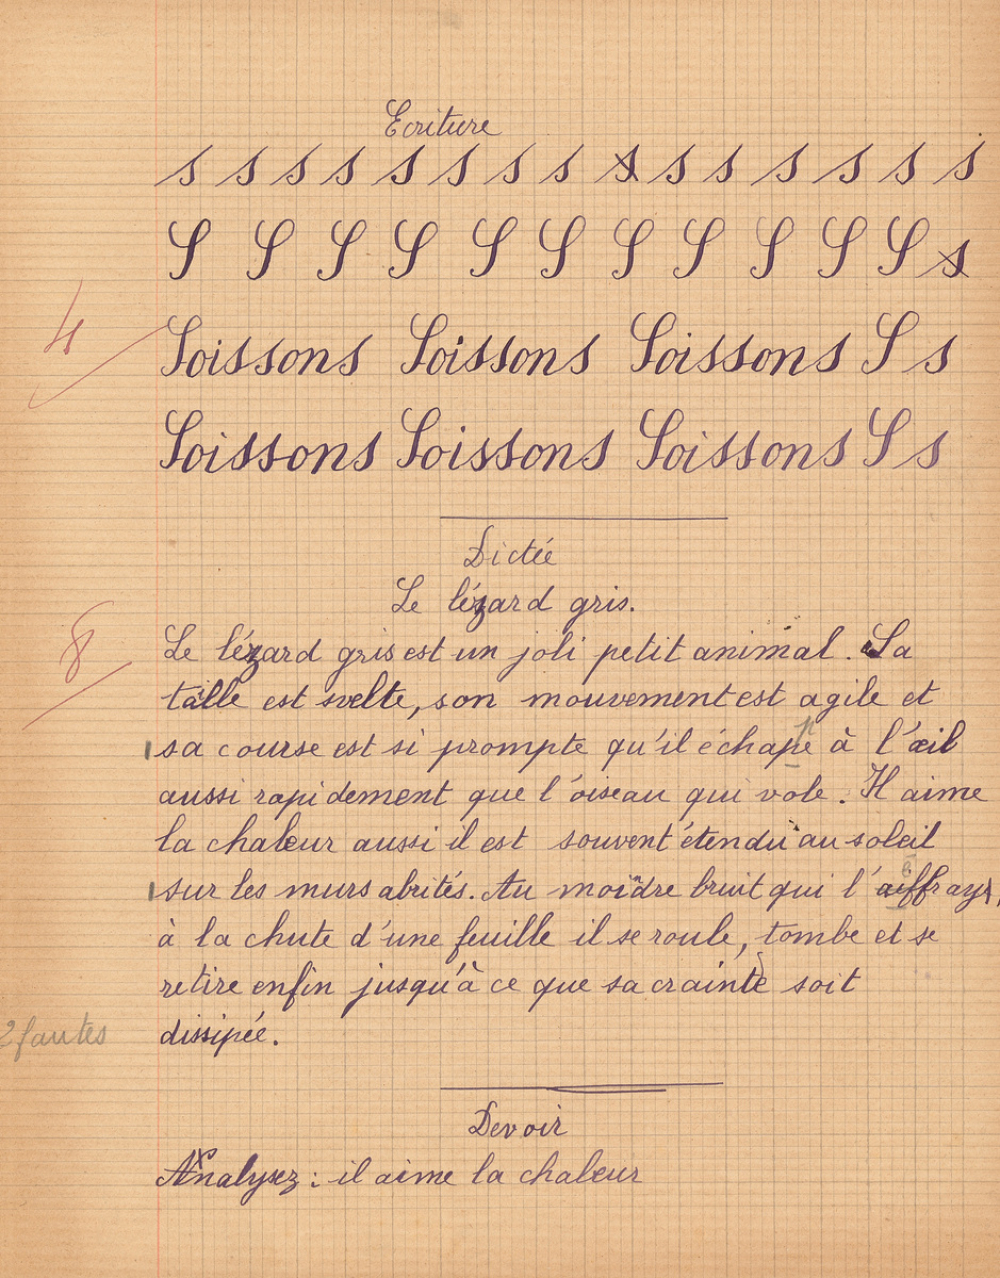 Ecriture
s s s s s s s s s s s s s s s
S S S S S S S S S S S s
4
Soissons Soissons Soissons S s
Soissons Soissons Soissons S s
Dictée
Le lézard gris.
8
Le lézard gris est un joli petit animal. Sa
taille est svelte, son mouvement est agile et
sa course est si prompte qu'il échape à l'œil
aussi rapidement que l'oiseau qui vole. Il aime
la chaleur aussi il est souvent étendu au soleil
sur les murs abrités. Au moindre bruit qui l'
à la chute d'une feuille il se roule, tombe et se
retire enfin jusqu'à ce que sa crainte soit
2 fautes
dissipée.
Devoir
Analysez : il aime la chaleur